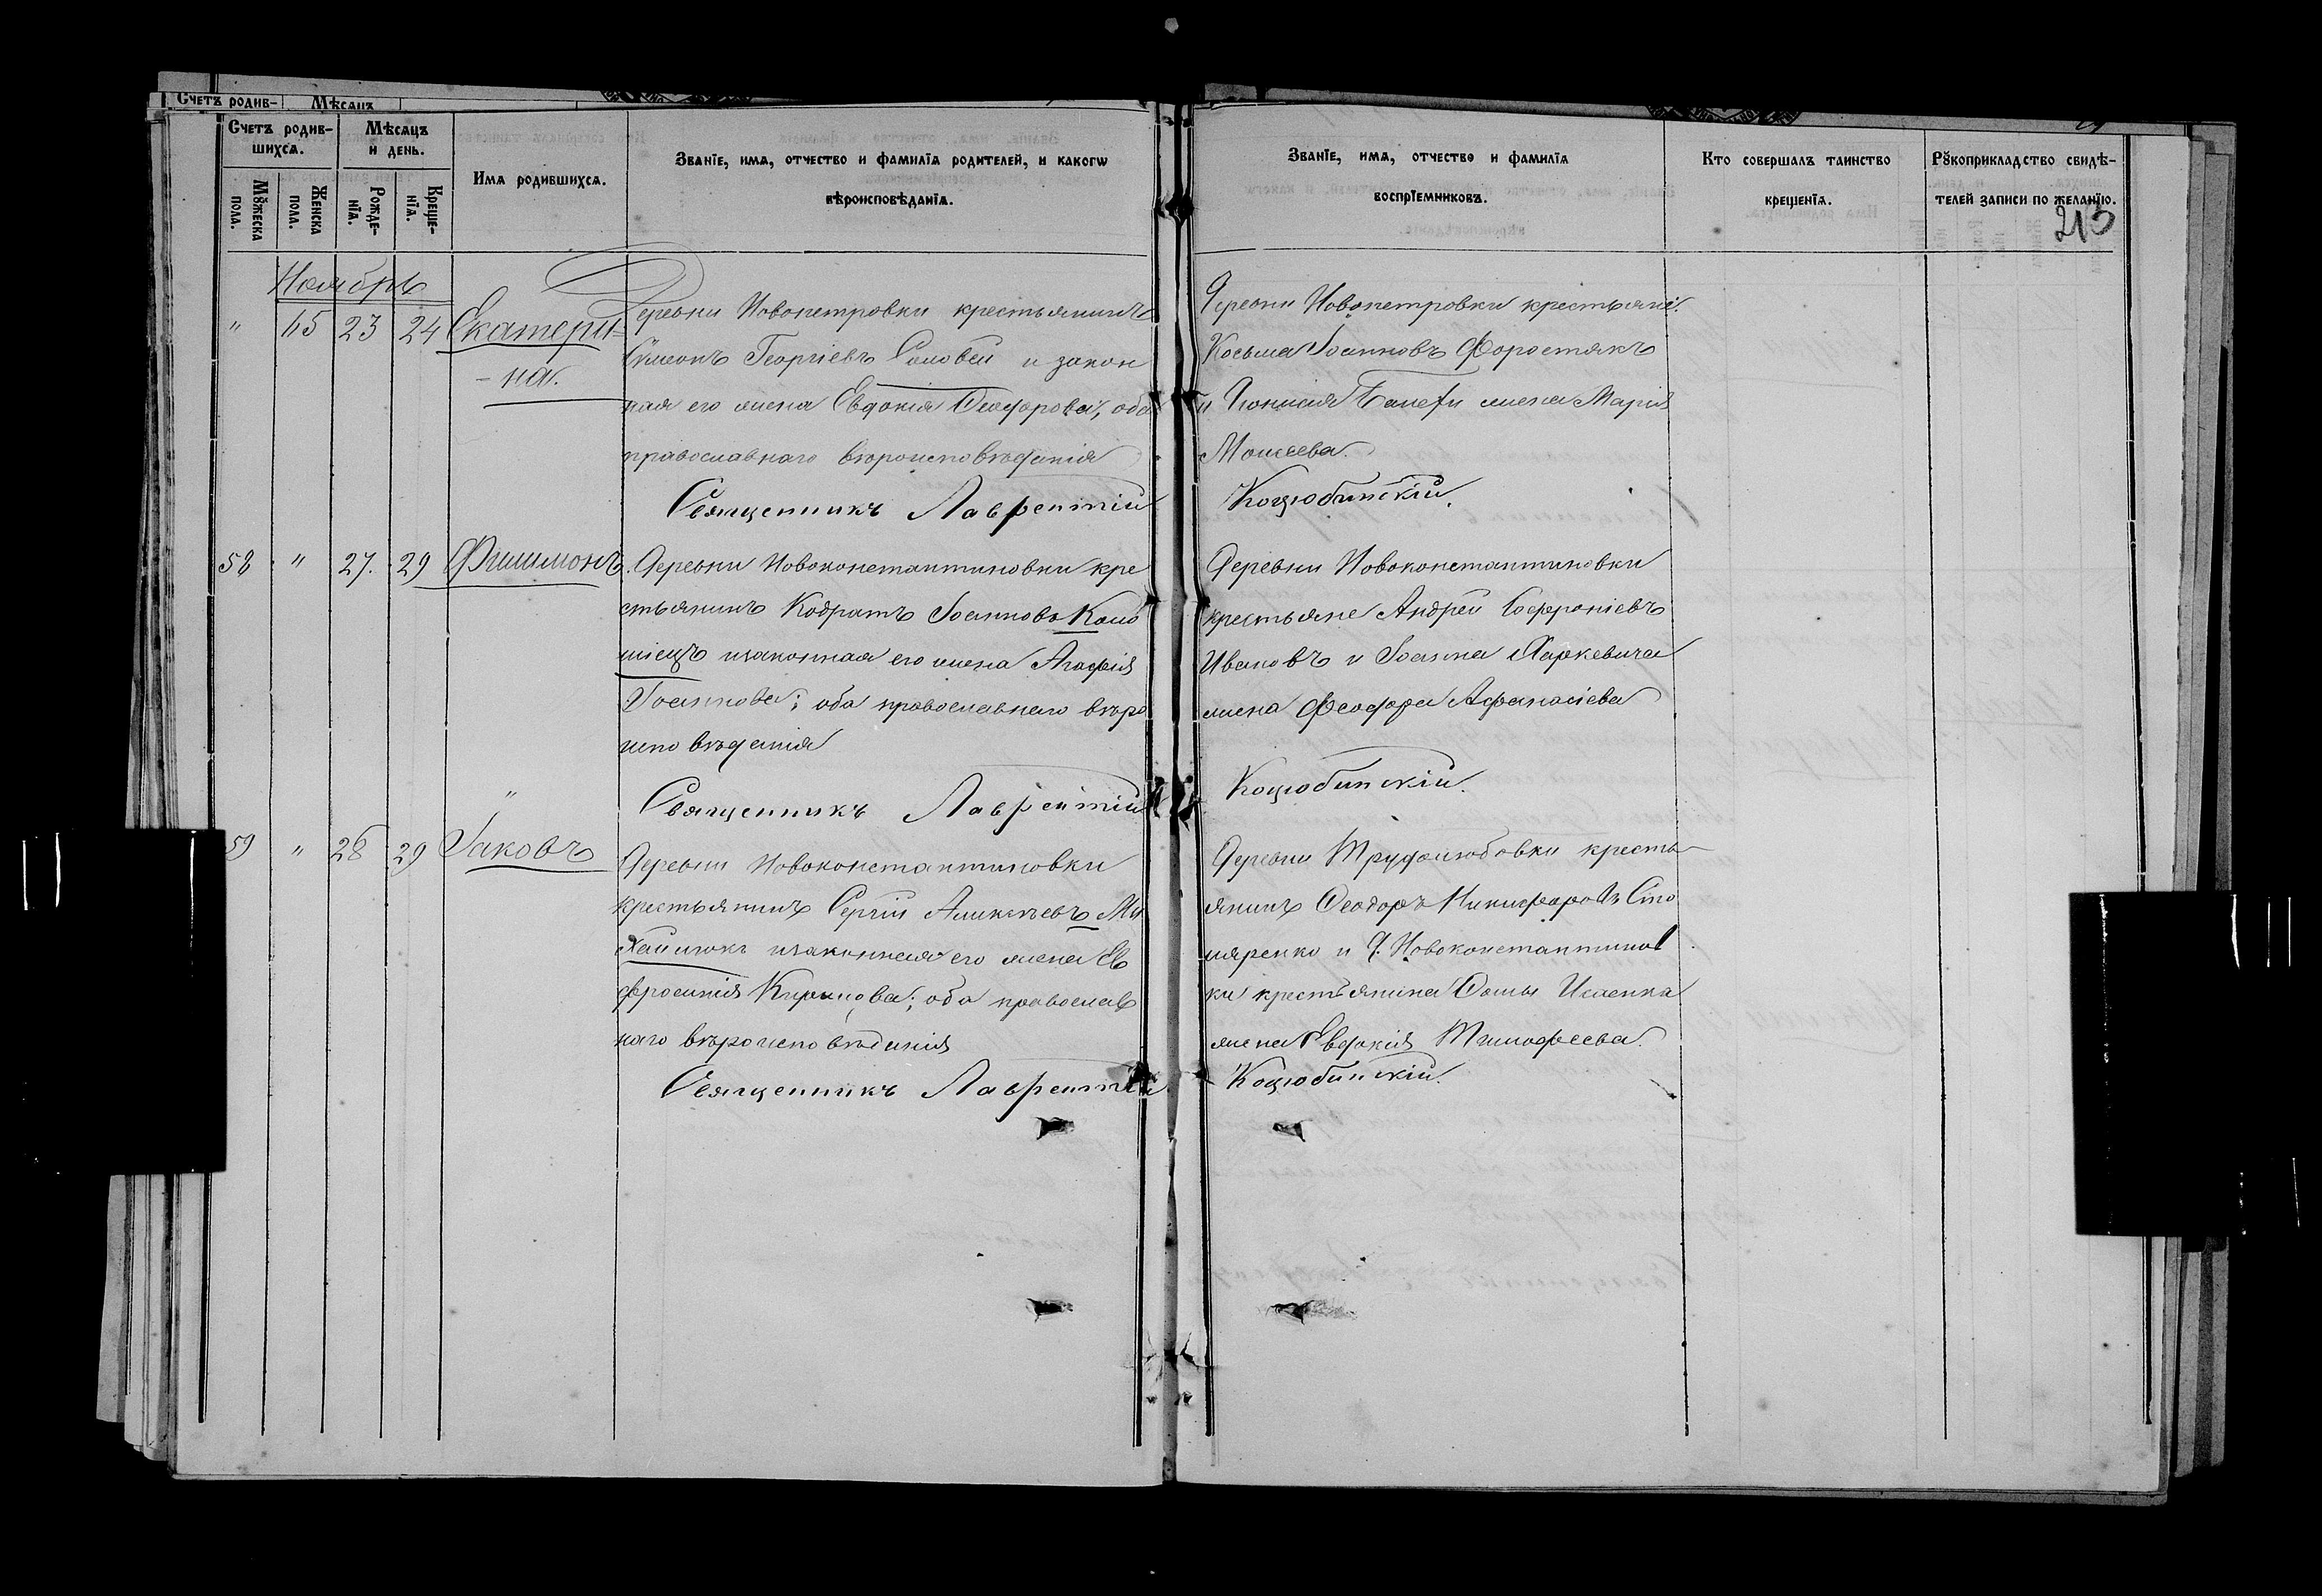 Счетъ родив- Мѣсяцъ
Счетъ родив-
шихся.
Мѣсяцъ
и день.
Мужеска
пола.
Женска
пола.
Рожде-
нія.
Креще-
нія.
Имя родившихся.
Званіе, имя, отчество и фамилія родителей, и какого
вѣроисповѣданія.
Званіе, имя, отчество и фамилія
воспріемниковъ.
Кто совершалъ таинство
крещенія.
Рукоприкладство свидѣ-
телей записи по желанію.
213
Ноябрь
" 45 23 24 Екатери-
-на.
Деревни Новопетровки крестьянинъ
Симеонъ Георгіевъ Соловей и закон
ная его жена Евдокія Ѳеодорова, оба
православнаго вѣроисповѣданія
Священникъ Лаврентій
Деревни Новопетровки крестьяне
Косьма Іоанновъ Форостякъ
и жена Марія
Моисеева.
Коцюбинскій.
58 " 27. 29 Филимонъ.
Деревни Новоконстантиновки кре
стьянинъ Кодратъ Іоанновъ Коло
міецъ изаконная его жена Агафія
Іоаннова; оба православнаго вѣро
исповѣданія
Священникъ Лаврентій
Деревни Новоконстантиновки
крестьяне Андрей Софроніевъ
Ивановъ и Іоанна Харкевича
жена Феодора Афанасіева
Коцюбинскій.
59 " 28 29 Іаковъ
Деревни Новоконстантиновки
крестьянинъ Сергій Алексѣевъ Ми
хайлюкъ изаконная его жена Ев
фросинія Кириллова; оба православ
наго вѣроисповѣданія
Священникъ Лаврентій
Деревни Трудолюбовки кресть-
янинъ Ѳеодоръ Никифоровъ Сто
ляренко и Д. Новоконстантинов
ки крестьянина Ѳомы Исаенка
жена Евдокія Тимофеева.
Коцюбинскій.